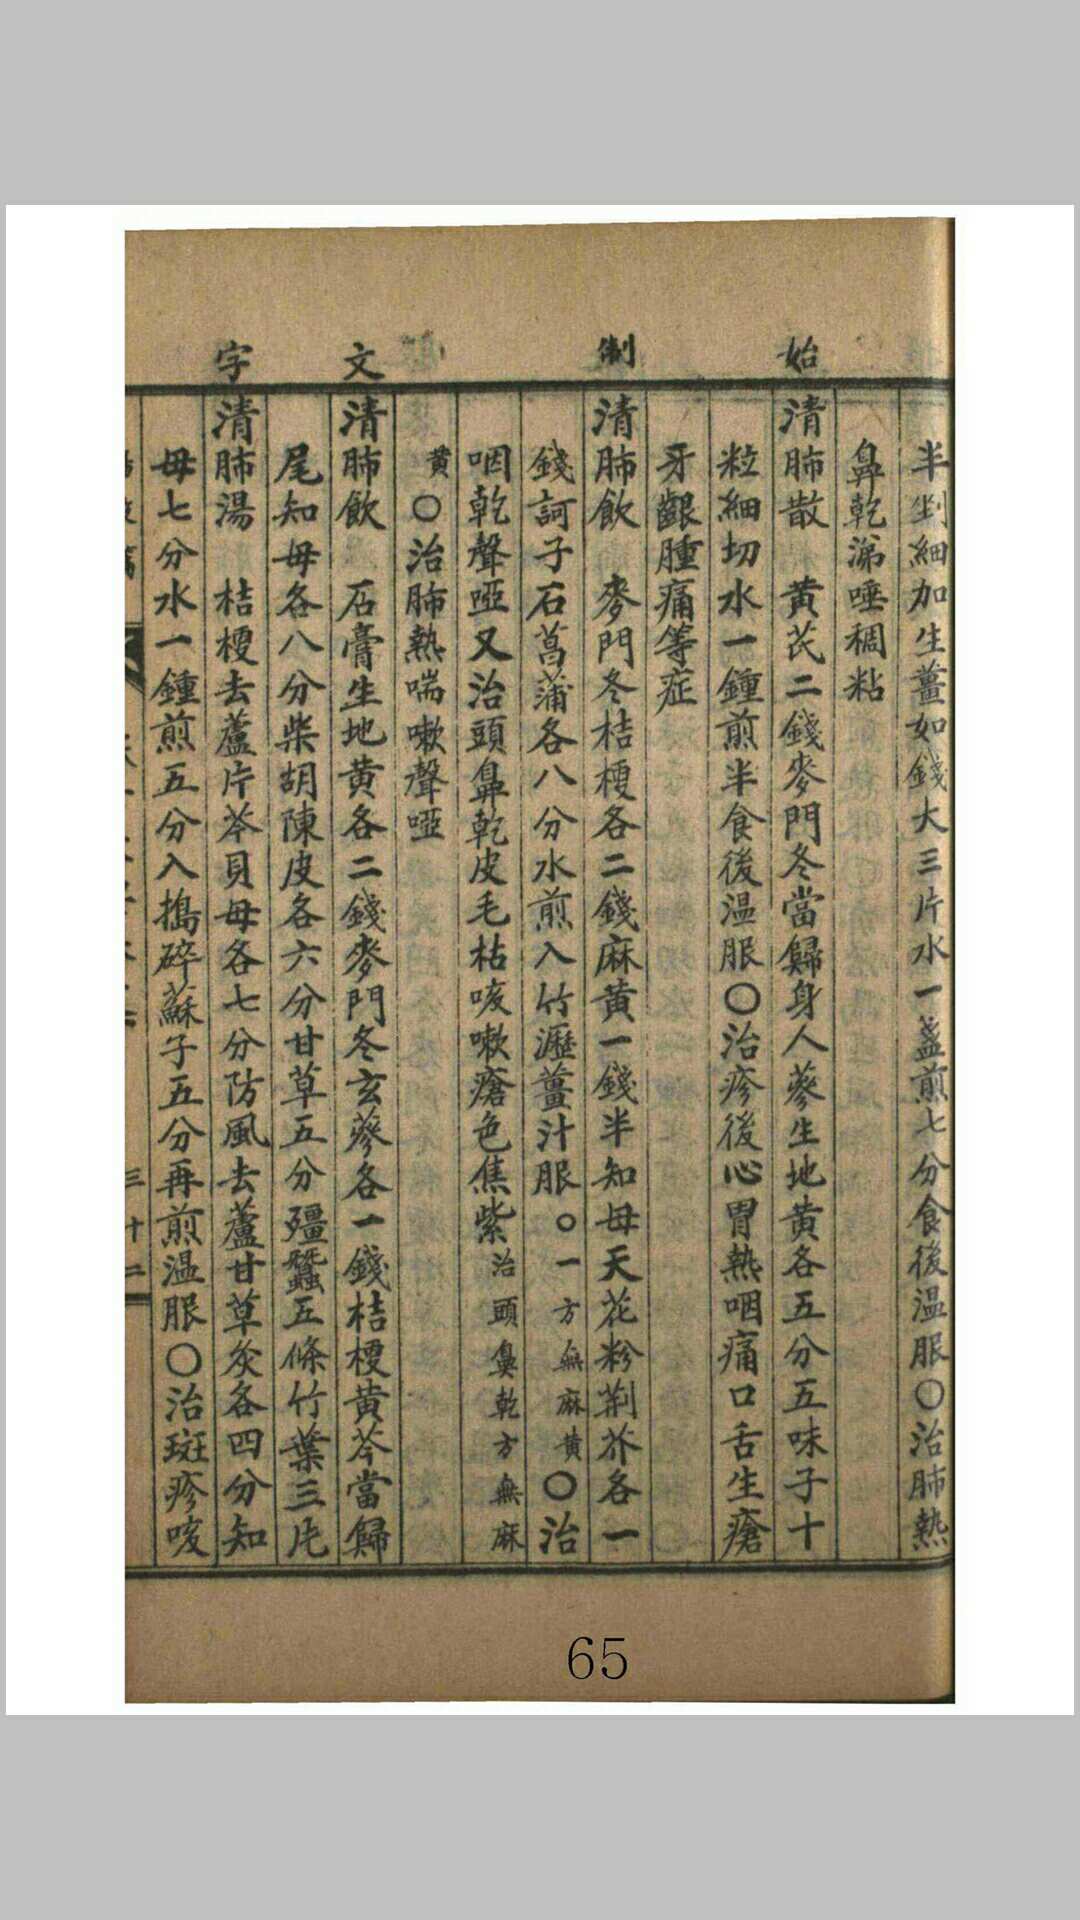 始
制
文
字
半剉細加生薑如錢大三片水一盞煎七分食後温服〇治肺熱
鼻乾涕唾稠粘
清肺散 黃芪二錢麥門冬當歸身人蔘生地黃各五分五味子十
粒細切水一鍾煎半食後温服〇治疹後心胃熱咽痛口舌生瘡
牙齦腫痛等症
清肺飲 麥門冬桔梗各二錢麻黃一錢半知母天花粉荆芥各一
錢訶子石菖蒲各八分水煎入竹瀝薑汁服〇一方無麻黃〇治
咽乾聲啞又治頭鼻乾皮毛枯咳嗽瘡色焦紫治頭鼻乾方無麻
黃〇治肺熱喘嗽聲啞
清肺飲 石膏生地黃各二錢麥門冬玄蔘各一錢桔梗黃芩當歸
尾知母各八分柴胡陳皮各六分甘草五分殭蠶五條竹葉三片
清肺湯 桔梗去蘆片芩貝母各七分防風去蘆甘草灸各四分知
母七分水一鍾煎五分入搗碎蘇子五分再煎温服〇治斑疹咳
三十二
65